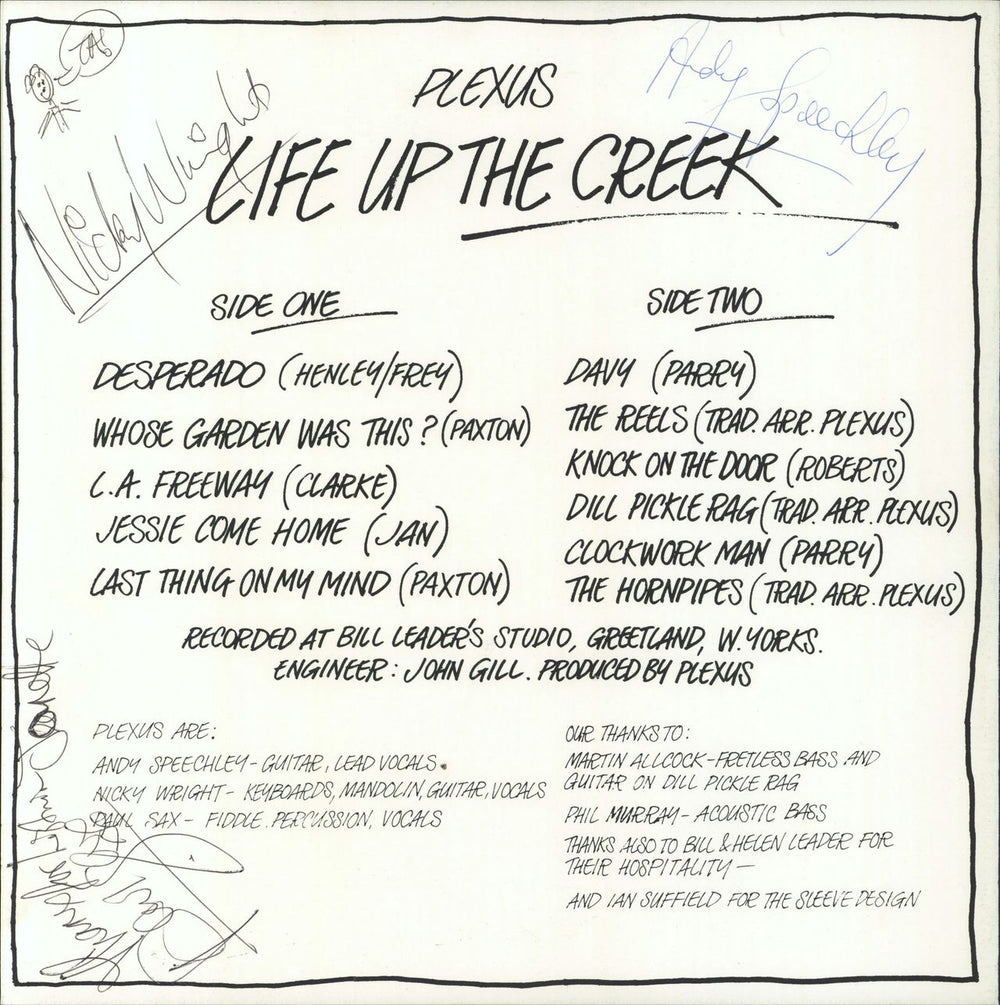 TAS
Nicky Wright
Andy Speechley
PLEXUS
LIFE UP THE CREEK
SIDE ONE
DESPERADO (HENLEY/FREY)
WHOSE GARDEN WAS THIS? (PAXTON)
L.A. FREEWAY (CLARKE)
JESSIE COME HOME (JAN)
LAST THING ON MY MIND (PAXTON)
SIDE TWO
DAVY (PARRY)
THE REELS (TRAD. ARR. PLEXUS)
KNOCK ON THE DOOR (ROBERTS)
DILL PICKLE RAG (TRAD. ARR. PLEXUS)
CLOCKWORK MAN (PARRY)
THE HORNPIPES (TRAD. ARR. PLEXUS)
RECORDED AT BILL LEADER'S STUDIO, GREETLAND, W. YORKS.
ENGINEER: JOHN GILL. PRODUCED BY PLEXUS
PLEXUS ARE:
ANDY SPEECHLEY - GUITAR, LEAD VOCALS.
NICKY WRIGHT - KEYBOARDS, MANDOLIN, GUITAR, VOCALS
PAUL SAX - FIDDLE. PERCUSSION, VOCALS
OUR THANKS TO:
MARTIN ALLCOCK - FRETLESS BASS AND
GUITAR ON DILL PICKLE RAG
PHIL MURRAY - ACOUSTIC BASS
THANKS ALSO TO BILL & HELEN LEADER FOR
THEIR HOSPITALITY —
AND IAN SUFFIELD FOR THE SLEEVE DESIGN
Thanks for
Paul